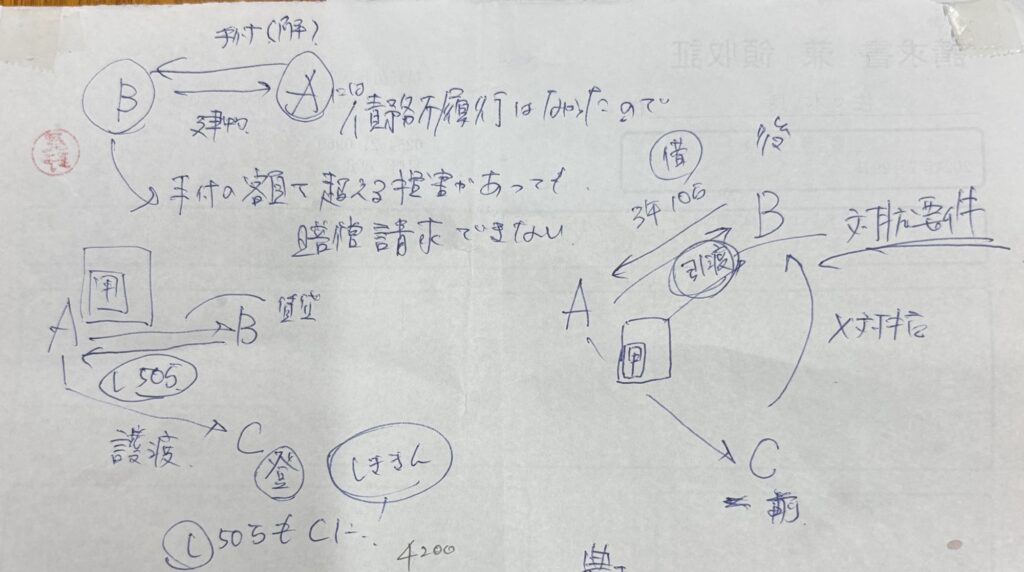 手付(解)
B
A
債務不履行はなかったので
手付の額を超える損害があっても
賠償請求できない
借
後
3年10ヶ
B
対抗要件
引渡
A
甲
X対抗
C
前
甲
A
B
賃貸
し50万
譲渡
C
登
しききん
し50万もCに
4200